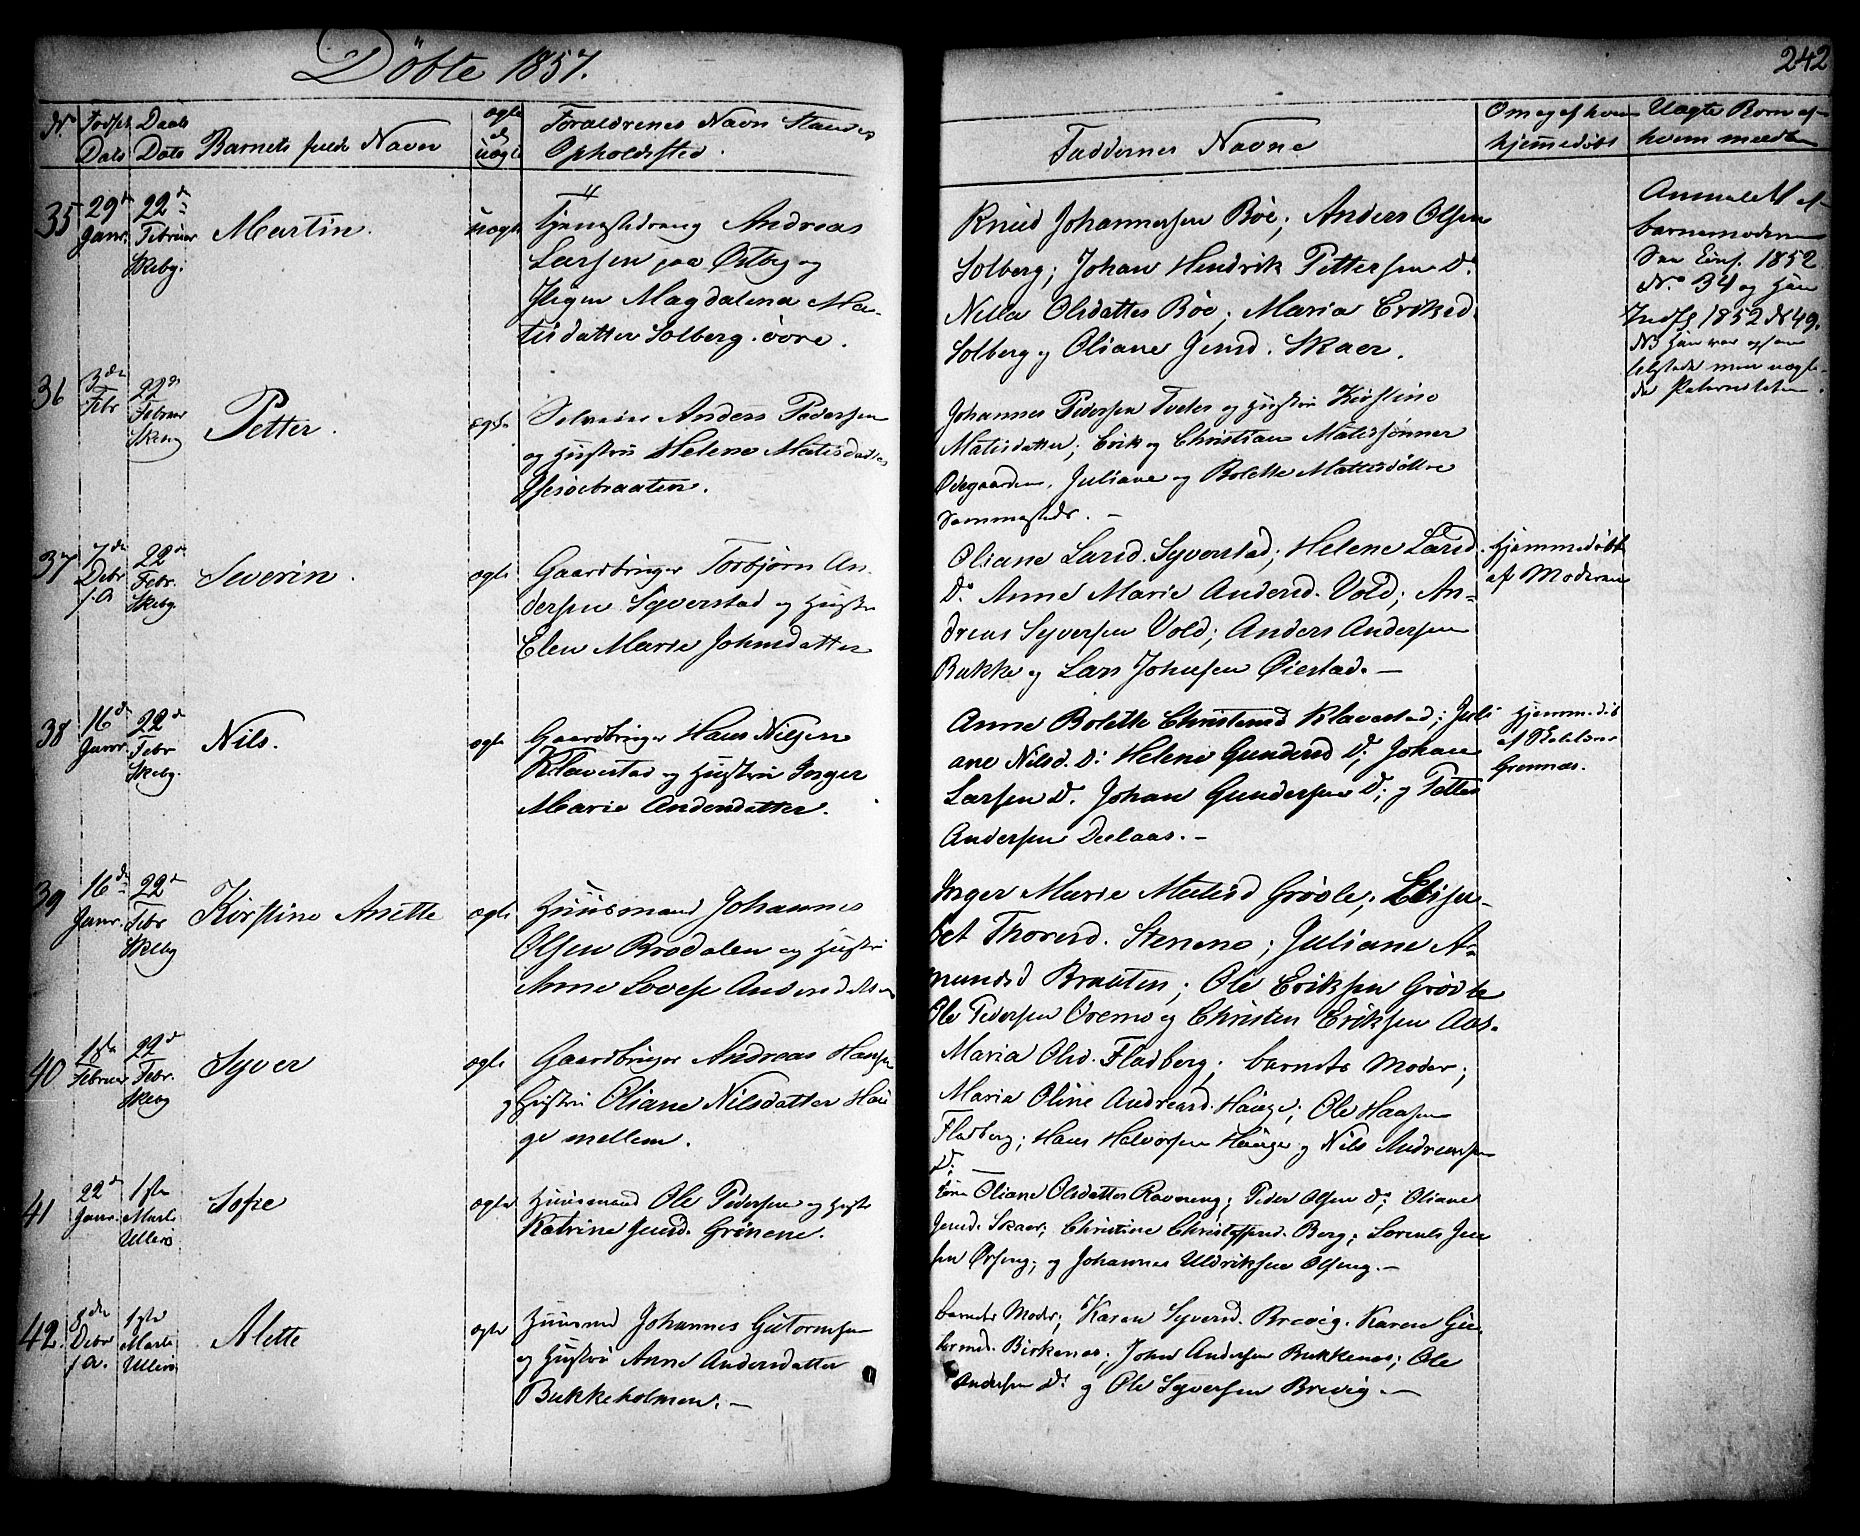 Döbte 1857.
242
No
Födsels Dato
Daabs Dato
Barnets fulde Navn
ægte el. uægte
Forældrenes Navn Stand
Opholdssted.
Faddernes Navne
Om og af hvem
hjemmedøbt
Uægte Børn af
hvem meldte
35
29de Janr.
22de Februar Skebg.
Martin.
uægte
Tjenestedreng Andreas
Larsen paa Østby og
Inger Magdalena Ma-
tisdatter Solberg øvre.
Knud Johannessen Böe; Anders Olsen
Solberg; Johan Hendrik Pettersen Do
Nilla Olsdatter Böe; Maria Eriksd.
Solberg og Oliane Jensd. Skaer.
Anmeldt af
barnemoderen
1852
No 34 og han
Indf. 1852 No 49.
36
3die Febr
22de Februar Skebg
Petter.
ægte
Selveier Anders Pedersen
og Hustru Helene Matisdatter
Johannes Pedersen Tveter og Hustru Kirstine
Matisdatter; Erik og Christian Matissönner
Ödegaarden, Juliane og Bolette Mattisdöttre
Sammesteds. —
37
7de Debr f.A
22de Febr. Skebg.
Severin.
ægte
Gaardbruger Torbjörn An-
dersen Syverstad og Hustru
Elen Marie Johnsdatter
Oliane Larsd. Syverstad; Helene Larsd.
Do Anne Marie Andersd. Vold; An-
dreas Syversen Vold; Anders Andersen
Bukke og Lars Johnsen Öiestad. —
Hjemmedöbt
af Moderen
38
16de Janr.
22de Febr Skebg.
Nils.
ægte
Gaardbruger Hans Nilsen
Klavestad og Hustru Inger
Marie Andersdatter.
Anne Bolette Christensd Klavestad; Juli-
ane Nilsd. Do Helene Gundersd Do; Johan
Larsen Do. Johan Gundersen Do; og Petter
Andersen Deelaas. —
Hjemmedöbt
af
Grönnæs.
39
16de Janr.
22de Febr Skebg
Kirstine Anette
ægte
Huusmand Johannes
Olsen Brodalen og Hustru
Anne Lovise Andersdatter
Inger Marie Matisd Grövle; Elisa-
bet Thoresd. Stenene; Juliane A-
mundsd Braaten; Ole Eriksen Grövle
Ole Pedersen Oremo og Christen Eriksen Aas.
40
1ste Februar
22de Febr. Skebg
Syver
ægte
Gaardbruger Andreas Hansen
og Hustru Oliane Nilsdatter Hau-
ge mellem.
Maria Olsd. Fladberg; barnets Moder;
Maria Oline Andreasd. Hauge; Ole Hansen
Fladberg; Hans Halvorsen Hauge og Nils Andreassen
Do.
41
22de Janr.
1ste Marts Ullerö
Sofie
ægte
Huusmand Ole Pedersen og Hustru
Katrine Jensd. Grönene.
Oliane Olsdatter Ravneng; Peder Olsen Do; Oliane
Jensd. Skaer; Christine Christoffersd. Berg; Lorents Jen-
sen Örseng; og Johannes Uldriksen Olseng. —
42.
8de Debr f.A.
1ste Marts Ullerö
Alette
ægte
Huusmd Johannes Guttormsen
og Hustru Anne Andersdatter
Bukkeholmen. —
barnets Moder; Karen Syversd. Brevig. Karen Gut-
tormsd. Birkenæs; John Andersen Bukkenæs; Ole
Andersen Do og Ole Syversen Brevig —